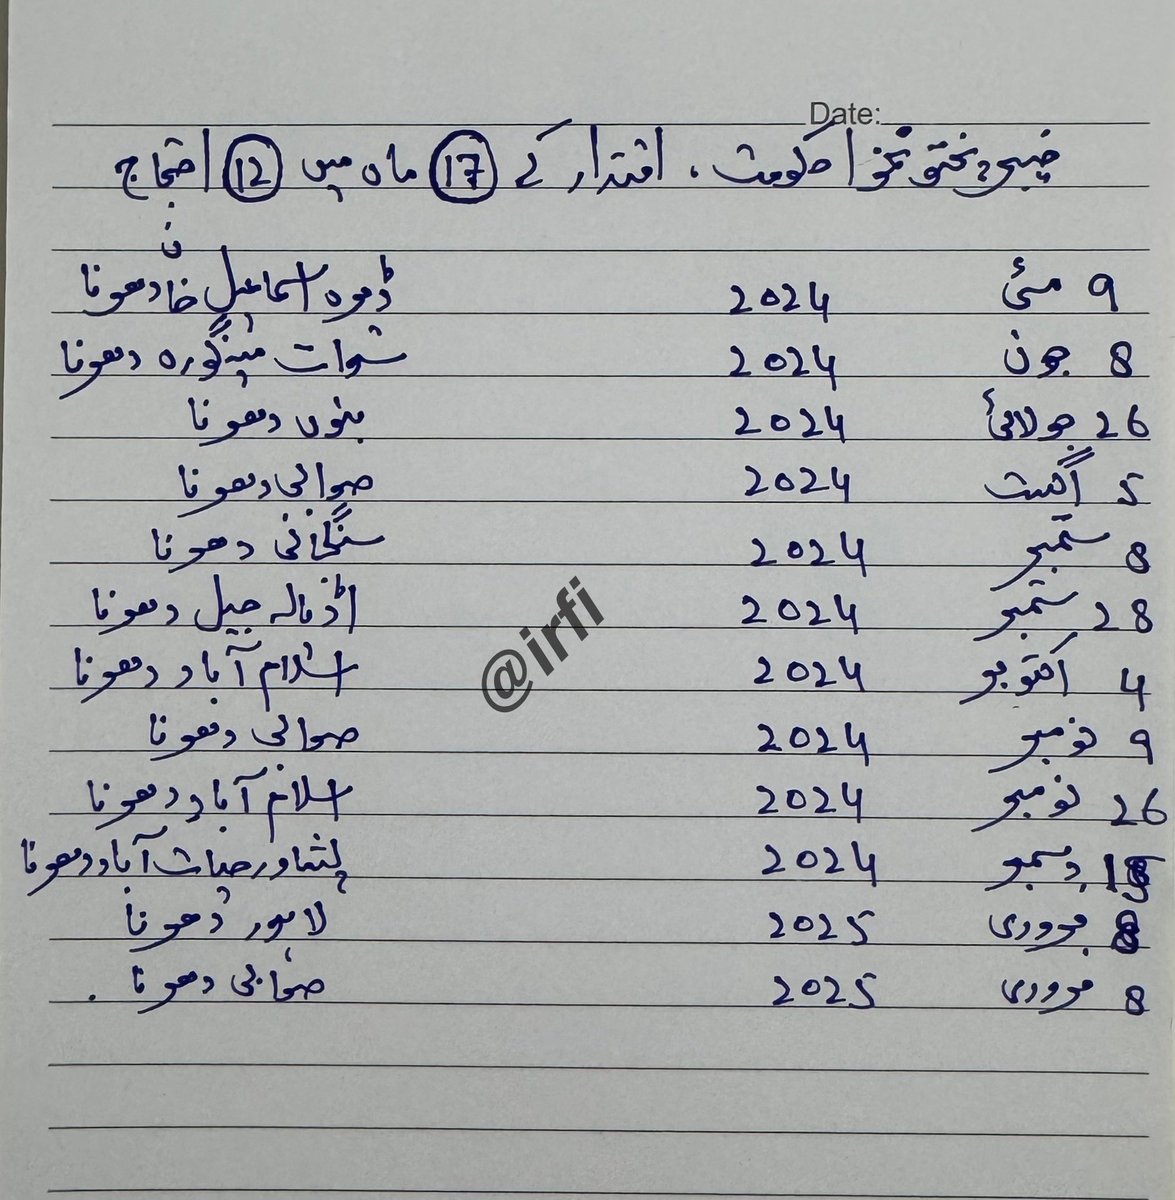 Date:
خیبر پختونخوا حکومت ، اقتدار کے 17 ماہ میں 12 احتجاج
9 مئی 2024 ڈیرہ اسماعیل خان دھرنا
8 جون 2024 سوات مینگورہ دھرنا
26 جولائی 2024 بنوں دھرنا
5 اگست 2024 صوابی دھرنا
8 ستمبر 2024 سنگجانی دھرنا
28 ستمبر 2024 اڈیالہ جیل دھرنا
4 اکتوبر 2024 اسلام آباد دھرنا
9 نومبر 2024 صوابی دھرنا
26 نومبر 2024 اسلام آباد دھرنا
15 دسمبر 2024 پشاور حیات آباد دھرنا
8 فروری 2025 لاہور دھرنا
8 فروری 2025 صوابی دھرنا .
@irfi